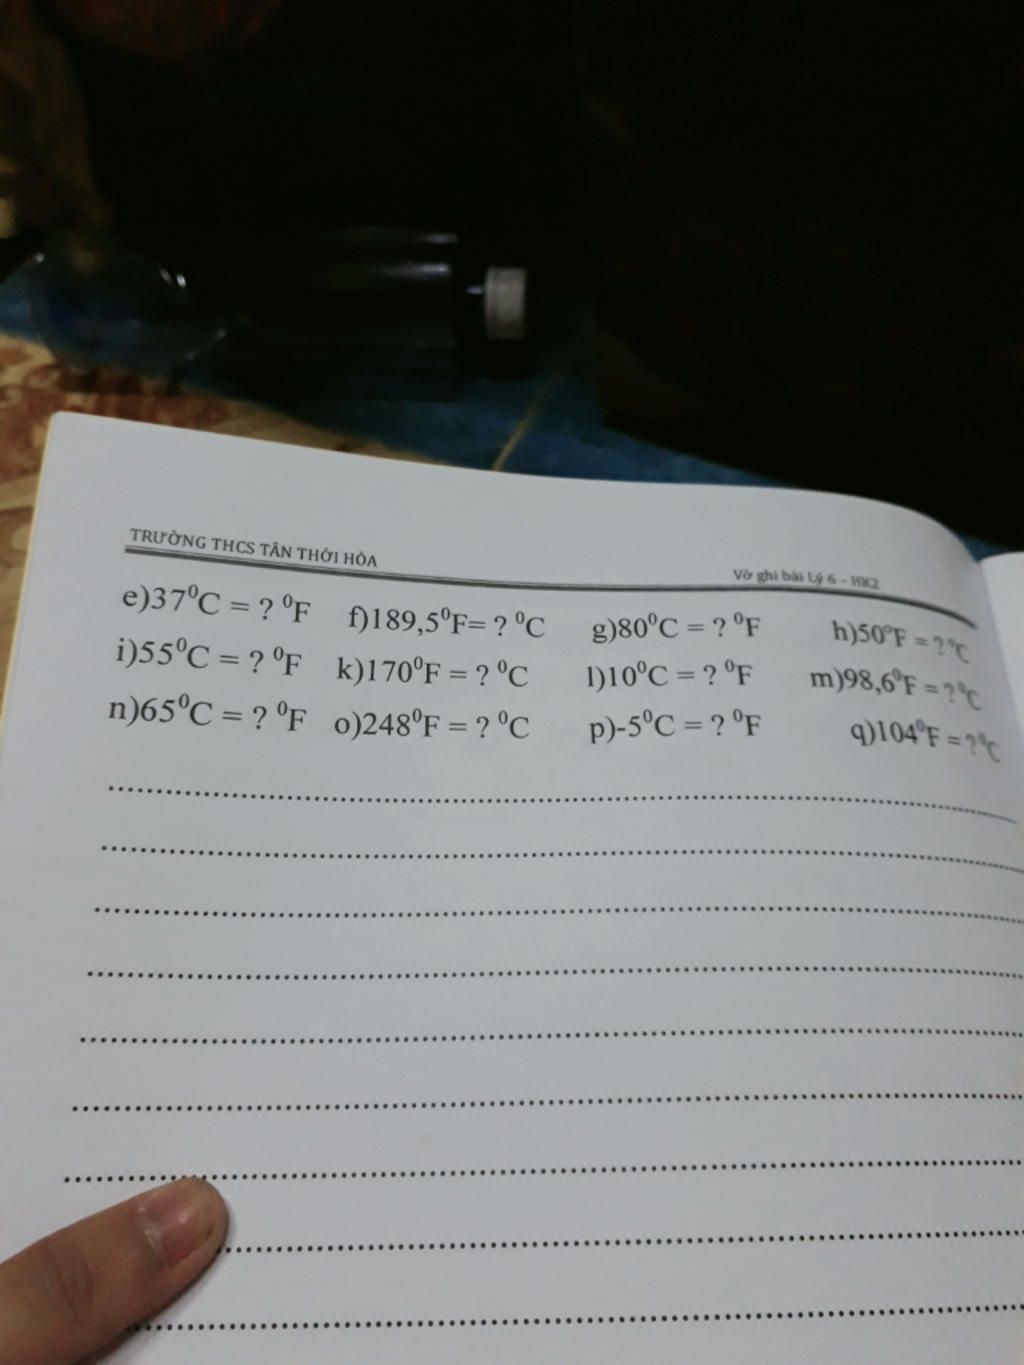 TRƯỜNG THCS TÂN THỚI HÒA
Vở ghi bài Lý 6 – HK2
e)37⁰C = ? ⁰F f)189,5⁰F= ? ⁰C g)80⁰C = ? ⁰F h)50⁰F = ? ⁰C
i)55⁰C = ? ⁰F k)170⁰F = ? ⁰C l)10⁰C = ? ⁰F m)98,6⁰F = ? ⁰C
n)65⁰C = ? ⁰F o)248⁰F = ? ⁰C p)-5⁰C = ? ⁰F q)104⁰F = ? ⁰C